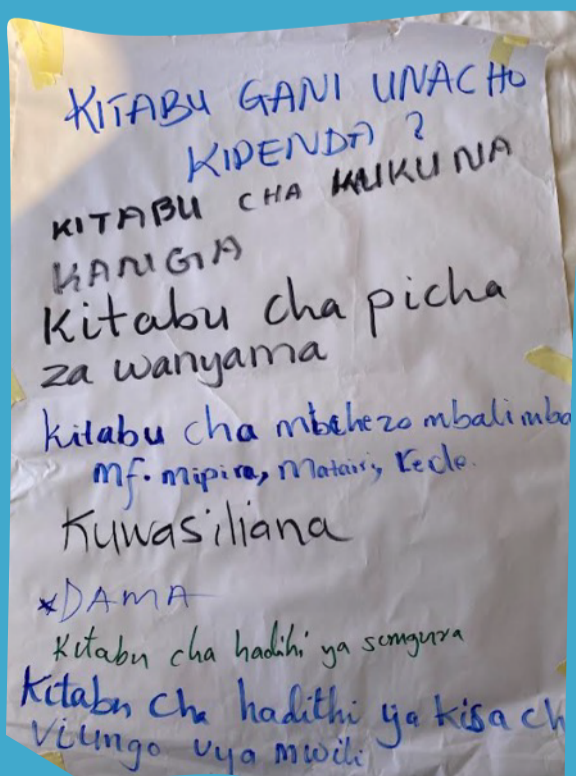 KITABU GANI UNACHO
KIPENDA ?
KITABU CHA KUKU NA
KANGIA
Kitabu cha picha
za wanyama
kitabu cha mbchezo mbalimba
mf. mipira, Matairi, Kede.
Kuwasiliana
*DAMA
Kitabu cha hadihi ya sungura
Kitabu cha hadithi ya kisa ch
Viungo vya mwili